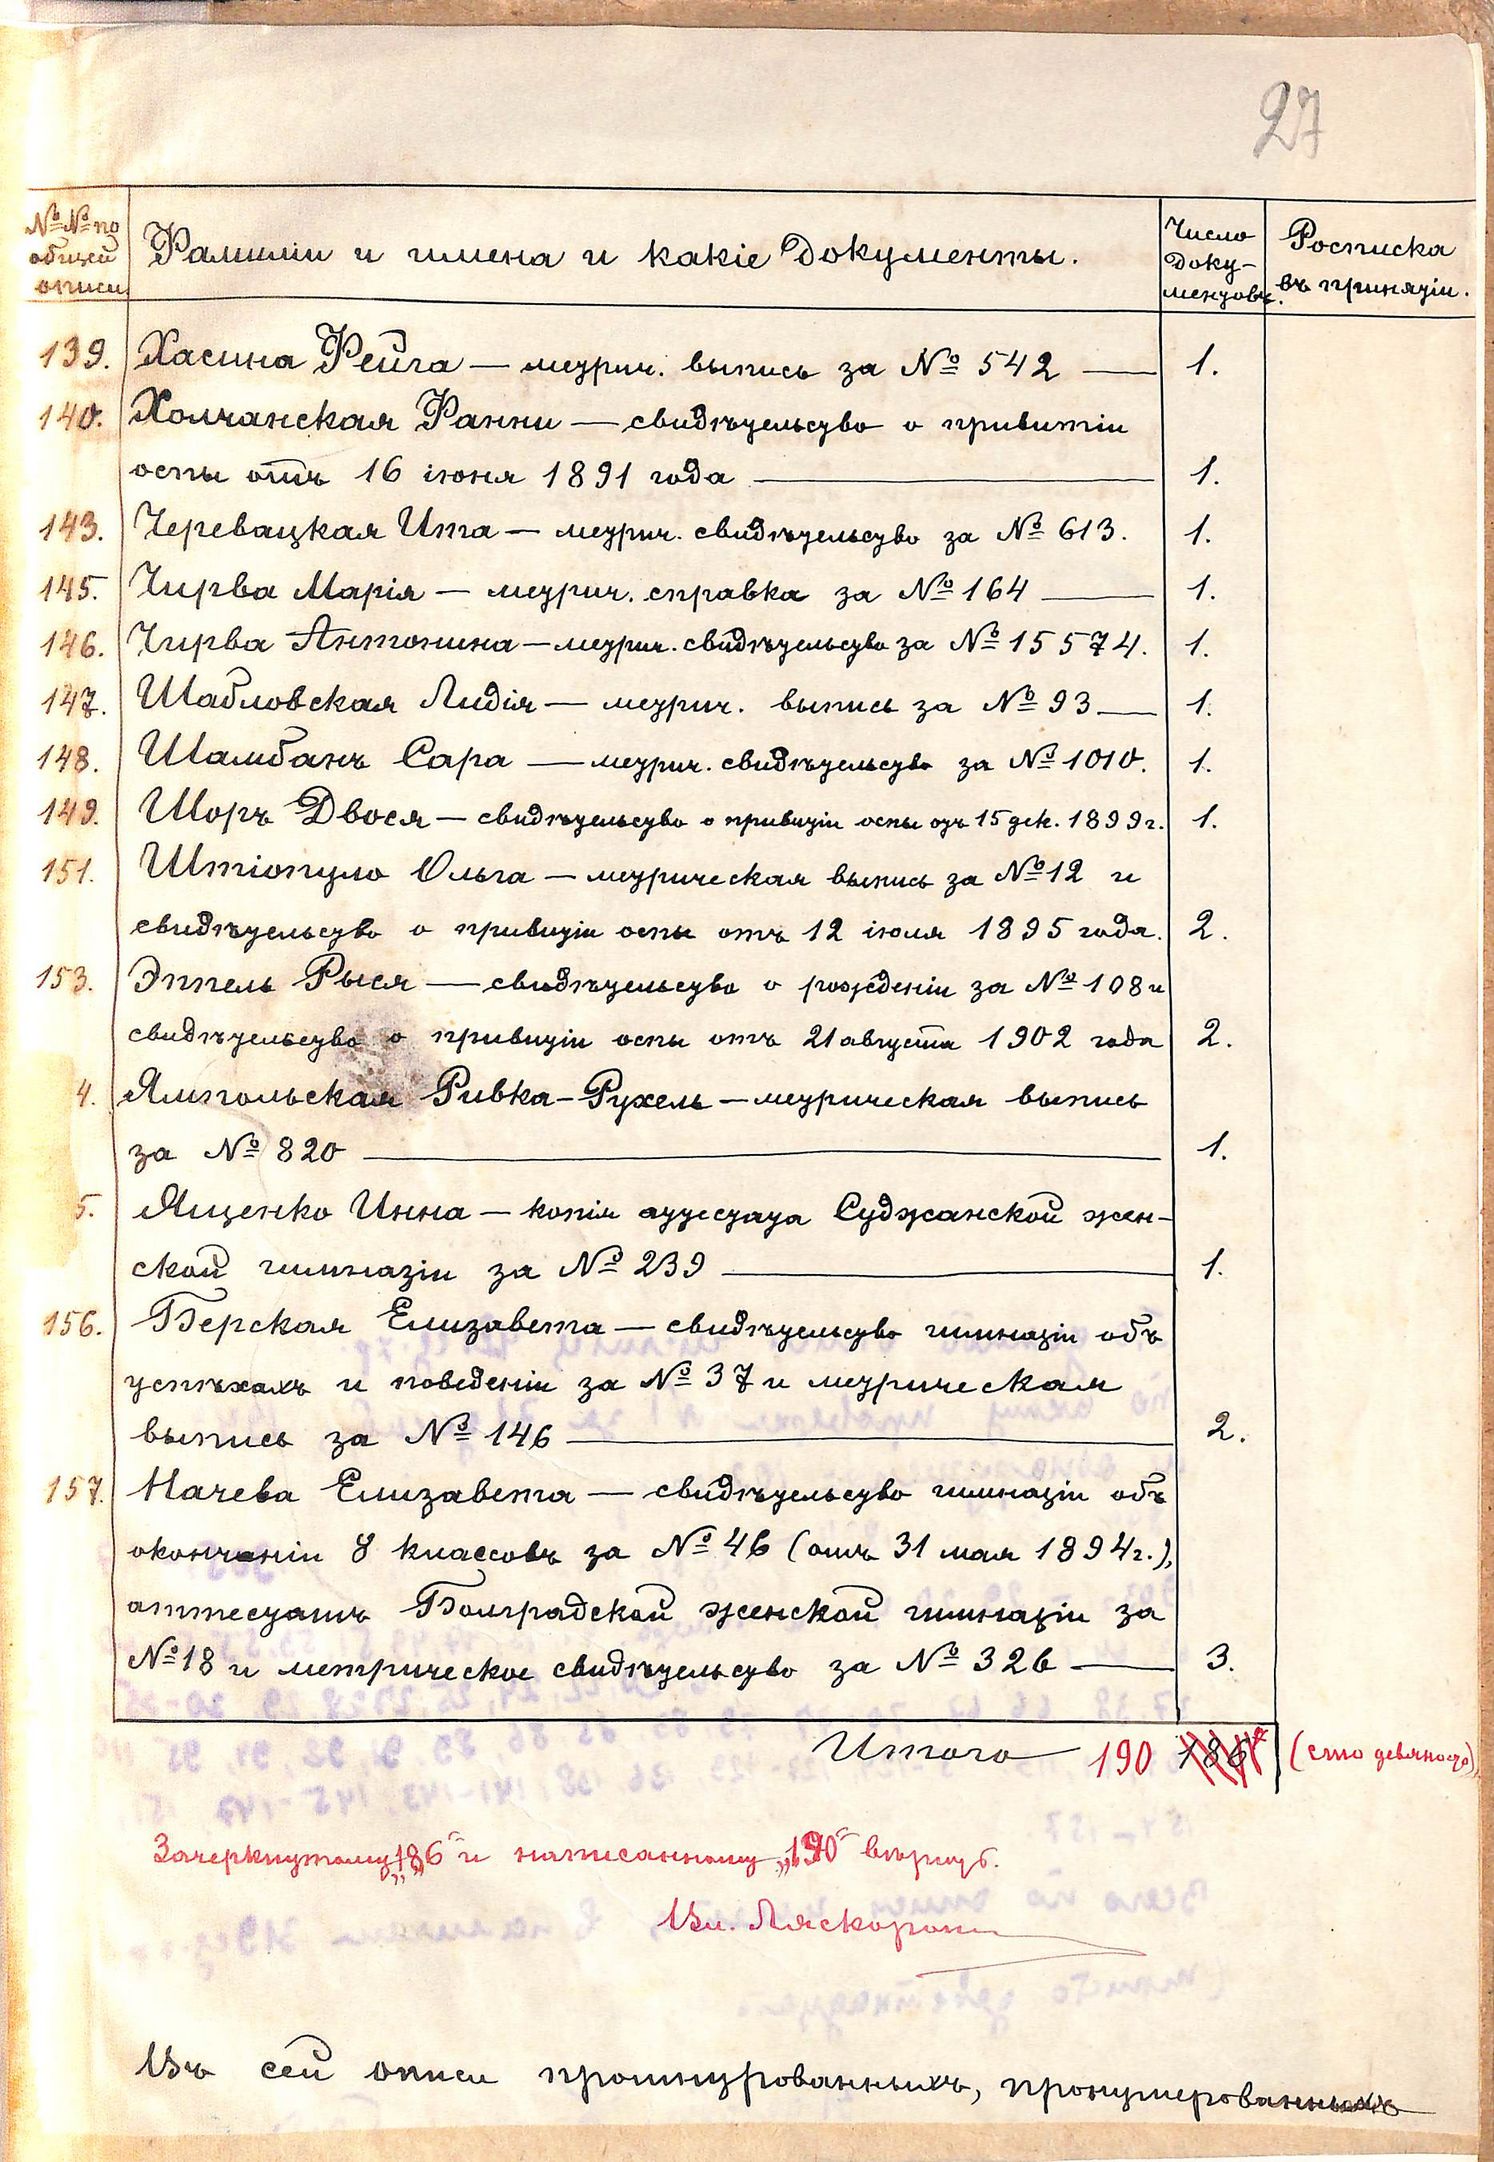 27
№№ по общей описи
Фамиліи и имена и какіе документы.
Число доку-ментовъ.
Росписка въ принятіи.
139. Хасина Фейга — метрич. выпись за № 542 — 1.
140. Холчанская Фанни — свидѣтельство о привитіи
оспы отъ 16 іюня 1891 года — 1.
143. Черевацкая Ита — метрич. свидѣтельство за № 613. 1.
145. Чирва Марія — метрич. справка за № 164 — 1.
146. Чирва Антонина — метрич. свидѣтельство за № 15574. 1.
147. Шабловская Лидія — метрич. выпись за № 93 — 1.
148. Шамбанъ Сара — метрич. свидѣтельство за № 1010. 1.
149. Шоръ Двося — свидѣтельство о привитіи оспы отъ 15 дек. 1899 г. 1.
151. Штіопуло Ольга — метрическая выпись за № 12 и
свидѣтельство о привитіи оспы отъ 12 іюля 1895 года. 2.
153. Эппель Рыся — свидѣтельство о рожденіи за № 108 и
свидѣтельство о привитіи оспы отъ 21 августа 1902 года 2.
4. Ямпольская Ривка-Рухель — метрическая выпись
за № 820 — 1.
5. Ященко Инна — копія аттестата Суджанской жен-
ской гимназіи за № 239 — 1.
156. Берская Елизавета — свидѣтельство гимназіи объ
успѣхахъ и поведеніи за № 37 и метрическая
выпись за № 146 — 2.
157. Начева Елизавета — свидѣтельство гимназіи объ
окончаніи 8 классовъ за № 46 (отъ 31 мая 1894 г.),
аттестатъ Болградской женской гимназіи за
№ 18 и метрическое свидѣтельство за № 326 — 3.
Итого 190 186 (сто девяносто),
Зачеркнутому „186“ и написанному „190“ вѣрить.
Вл. Ляскорон
Въ сей описи прошнурованныхъ, пронумерованныхъ